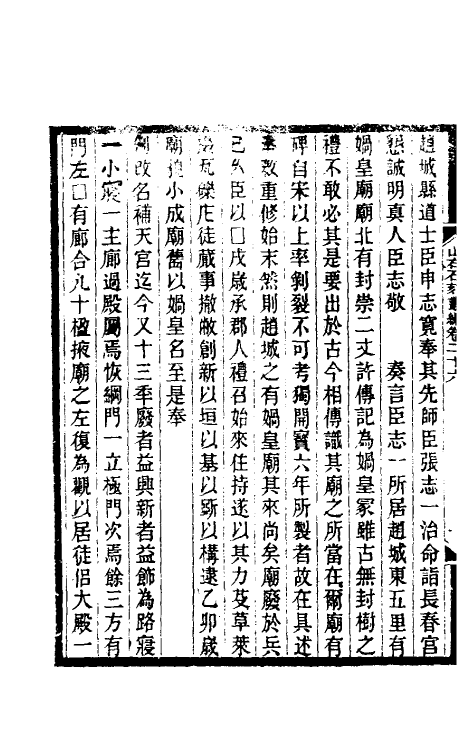 趙城縣道士臣申志寬奉其先師臣張志一治命詣長春宮
懇誠明真人臣志敬　奏言臣志一所居趙城東五里有
媧皇廟廟北有封崇二丈許傳記為媧皇冢雖古無封樹之
禮不敢必其是要出於古今相傳識其廟之所當在爾廟有
碑自宋以上率剝裂不可考獨開寶六年所製者故在具述
奉敕重修始末然則趙城之有媧皇廟其來尚矣廟廢於兵
已久臣以囗戌歲承郡人禮召始來住持遂以其力芟草萊
瓦礫庀徒蕆事撤敝創新以垣以基以斲以構逮乙卯歲
廟獲小成廟舊以媧皇名至是奉
改名補天宮迄今又十三季廢者益興新者益飾為路寢
一小寢一主廊過殿屬焉恢綱門一立極門次焉餘三方有
門左囗有廊合九十楹掖廟之左復為觀以居徒侶大殿一
山右石刻叢編卷二十六